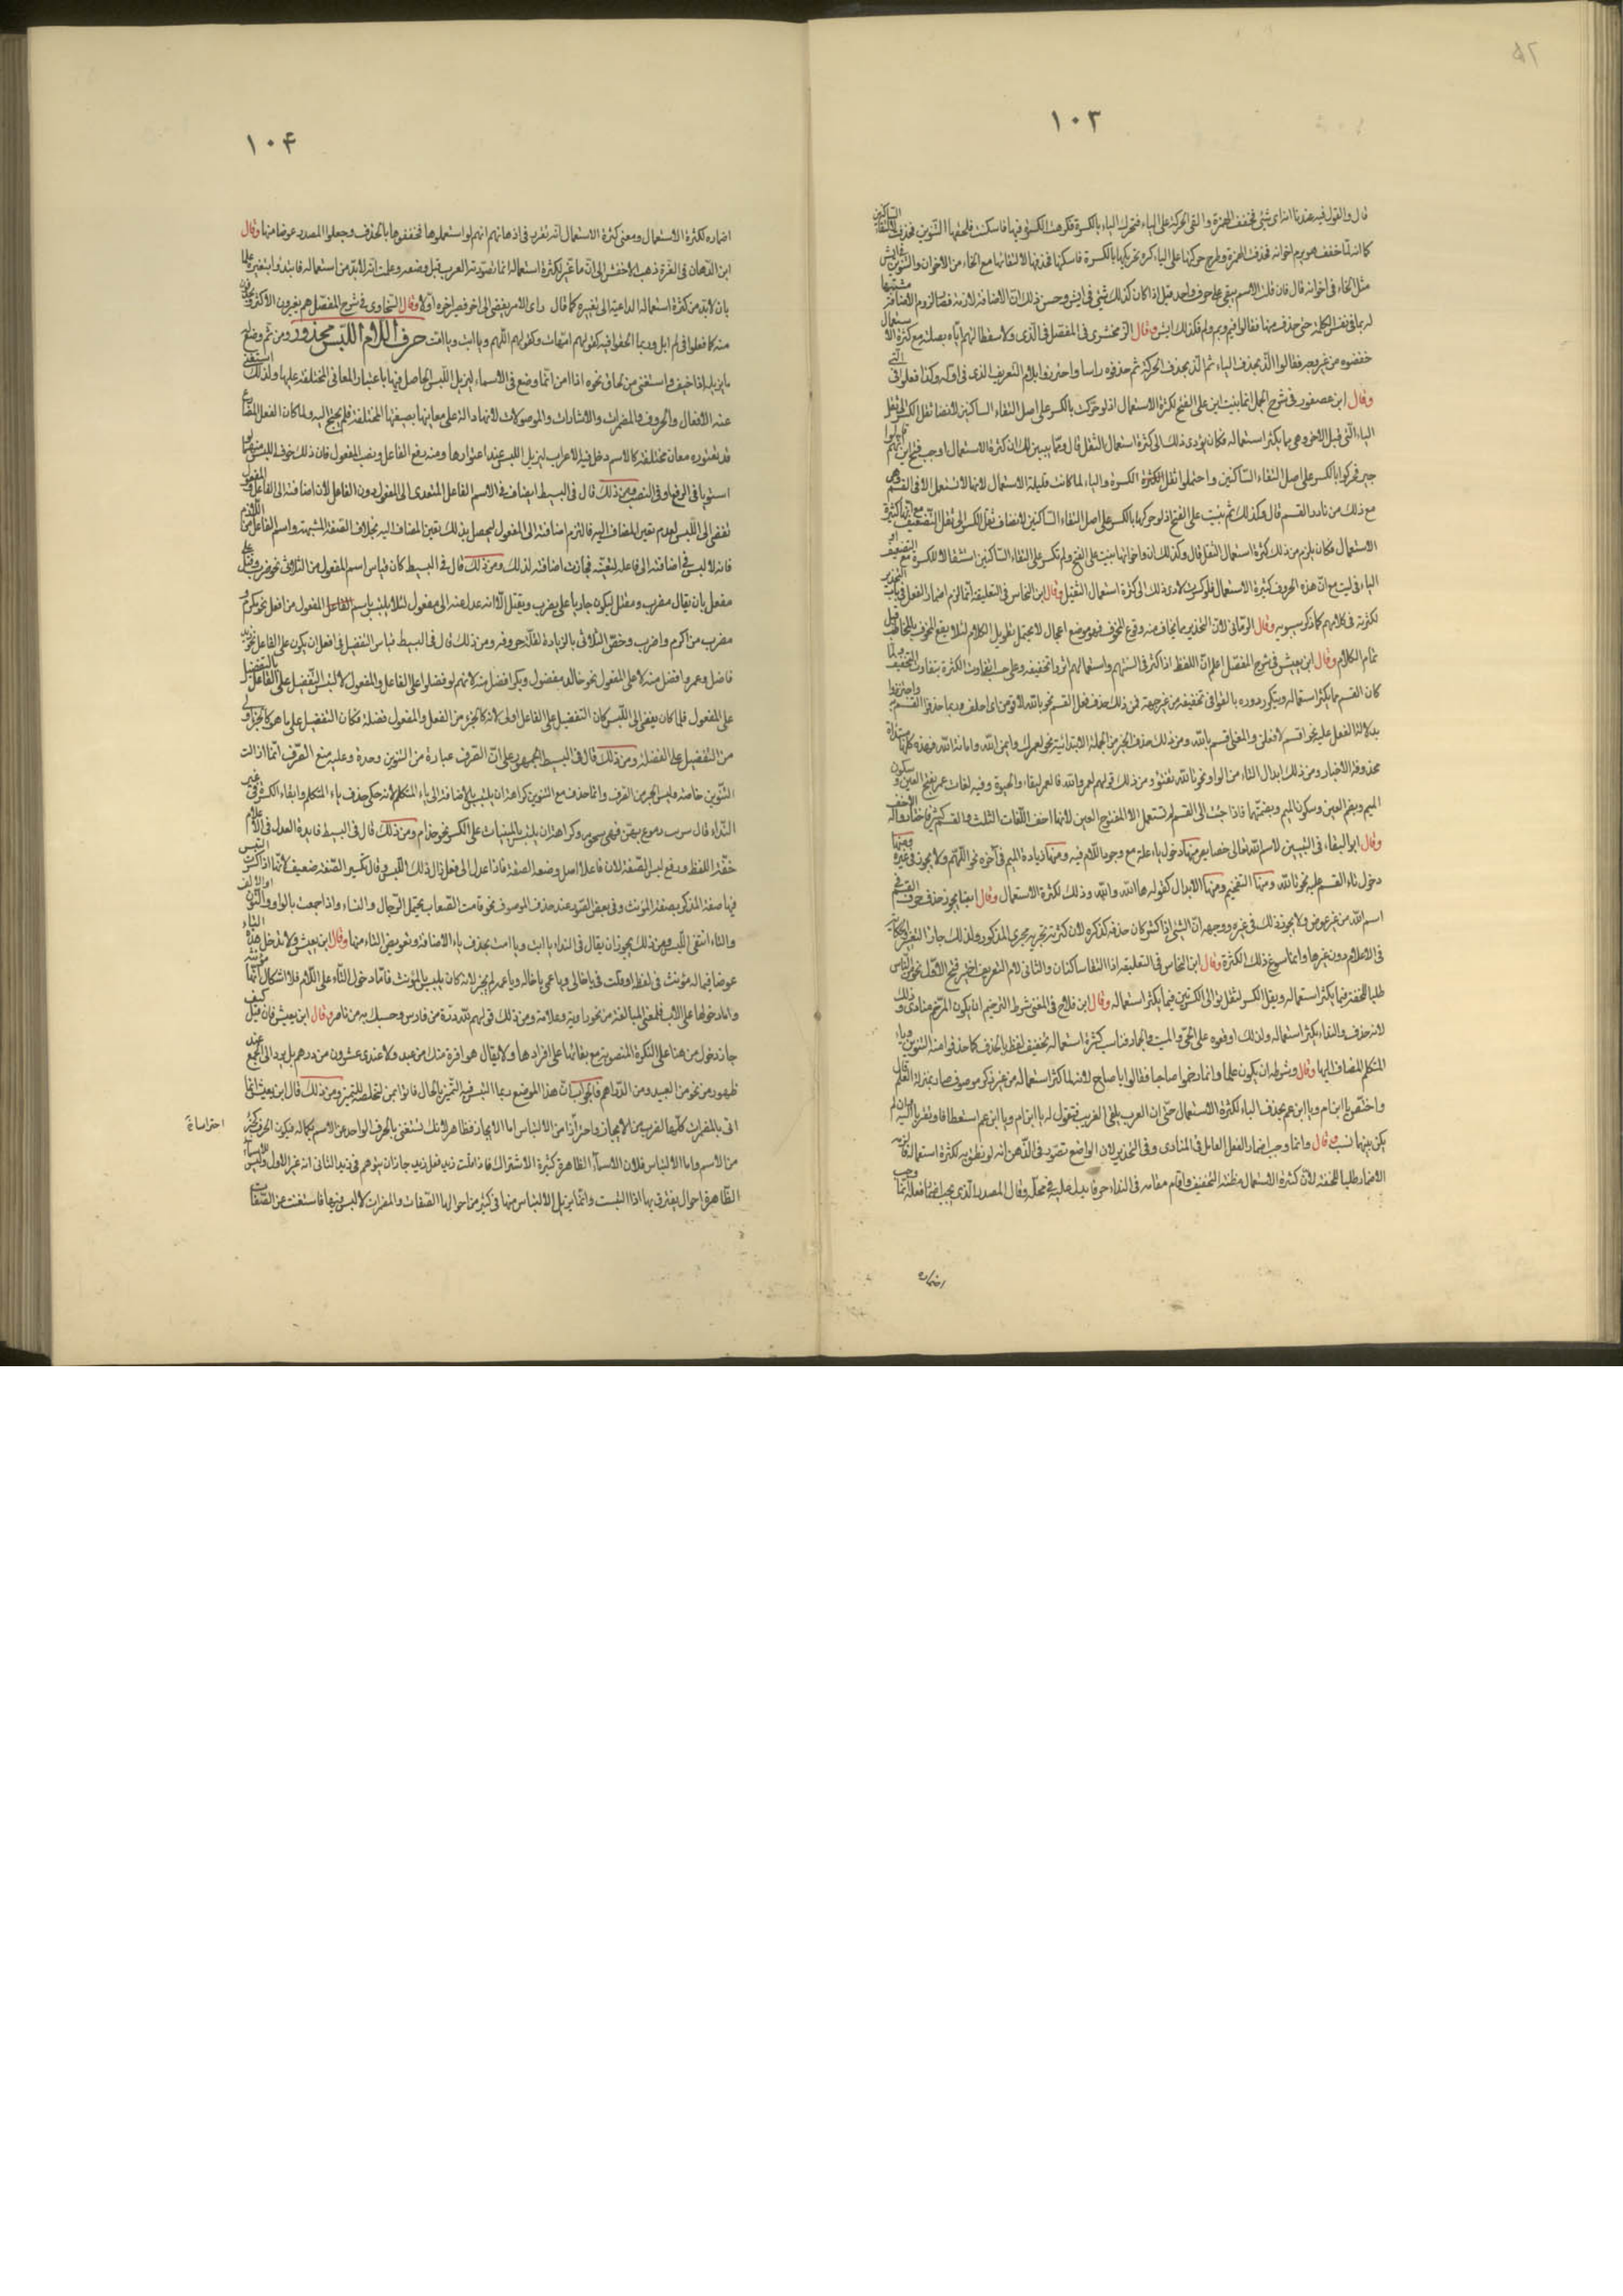 ١٠٣
قال والقول فيه عندنا انه اى شئ فخفف الهمزة والقى الحركة على الياء فتحرك الياء بالكسرة فكرهت الكسرة فيها فاسكنت فلحقها التنوين فحذفت
كما انه لما خفف هو يرم اخوانه فحذف الهمزة وطرح حركتها على الياء كره تحريكها بالكسرة فاسكنها فحذفها لالتقائها مع الخاء من الاخوان والتنوين
مثل الخاء فى اخوانه قال فان قلت الاسم يبقى على حرف واحد قيل اذا كان كذلك شئ فى ايش وحسن ذلك ان الاضافة لازمة فصار لزوم الاضافة مشبها
له بما فى نفس الكلمة حتى حذف منها فقالوا فيم وبم ولم فكذلك ايش وقال الزمخشرى فى المفصل فى الذى ولاستطالتهم اياه بصلته مع كثرة الاستعمال
خففوه من غير وجه فقالوا اللذ بحذف الياء ثم اللذ بحذف الحركة ثم حذفوه راسا واجتزوا بلام التعريف الذى فى اوله وكذا فعلوا فى التى
وقال ابن عصفور فى شرح الجمل انما بنيت اين على الفتح لكثرة الاستعمال اذ لو حركت بالكسر على اصل التقاء الساكنين لانضاف ثقل الكسر الى ثقل
الياء التى قبل الاخر وهى مما يكثر استعماله فكان يؤدى ذلك الى كثرة استعمال الثقل قال ومما يبين لك ان كثرة الاستعمال اوجب فتح اين انهم قالوا
جير فحركوا بالكسر على اصل التقاء الساكنين واحتملوا ثقل الكسرة والياء لما كانت قليلة الاستعمال لانها لا تستعمل الا فى القسم وهى
مع ذلك من نادر القسم قال وكذلك ثم بنيت على الفتح اذ لو حركوها بالكسر على اصل التقاء الساكنين لانضاف ثقل الكسر الى ثقل التضعيف مع انها كثيرة
الاستعمال فكان يلزم من ذلك كثرة استعمال الثقل قال وكذلك ان واخواتها بنيت على الفتح ولم تكسر على التقاء الساكنين استثقالا للكسرة مع التضعيف او
الياء فى ليت مع ان هذه الحروف كثيرة الاستعمال فلو كسرت لادى ذلك الى كثرة استعمال الثقيل وقال ابن النحاس فى التعليقة انما لزم اضمار الفعل فى باب التحذير
لكثرته فى كلامهم كما ذكر سيبويه وقال الرمانى لان التحذير مما يخاف منه وقوع المخوف فهو موضع اعجال لا يحتمل تطويل الكلام لئلا يقع المخوف بالمخاطب قبل
تمام الكلام وقال ابن يعيش فى شرح المفصل اعلم ان اللفظ اذا كثر فى السنتهم واستعمالهم اثروا تخفيفه وعلى حسب تفاوت الكثرة يتفاوت التخفيف ولما
كان القسم مما يكثر استعماله ويتكرر دوره بالغوا فى تخفيفه من غير جهة فمن ذلك حذف فعل القسم نحو بالله لاقومن اى احلف وربما حذفوا القسم به واجتزوا
بدلالة الفعل عليه نحو اقسم لافعلن والمعنى اقسم بالله ومن ذلك حذف الخبر من الجملة الابتدائية نحو لعمرك وايمن الله وامانة الله فهذه كلها مبتدآة
محذوفة الاخبار ومن ذلك ابدال التاء من الواو نحو تالله تفتؤ ومن ذلك قولهم لعمر الله فالعمر البقاء والحيوة وفيه لغات عمر بفتح العين وسكون
الميم وبضم العين وسكون الميم وبضمتيهما فاذا جئت الى القسم لم تستعمل الا المفتوح العين لانها اخف اللغات الثلث والقسم كثير فاختاروا له الاخف
وقال ابو البقاء فى التبيين لاسم الله تعالى خصايص منها دخول يا عليه مع وجود اللام فيه ومنها زيادة الميم فى آخره نحو اللهم ولا يجوز فى غيره ومنها
دخول تاء القسم عليه نحو تالله ومنها التفخيم ومنها الابدال كقوله ها الله وآالله وذلك لكثرة الاستعمال وقال ايضا يجوز حذف حرف القسم فى
اسم الله من غير عوض ولا يجوز ذلك فى غيره ووجهه ان الشئ اذا كثر كان حذفه كذكره لان كثرته تجريه مجرى المذكور ولذلك جاز التغيير والحكاية
فى الاعلام دون غيرها وانما سوغ ذلك الكثرة وقال ابن النحاس فى التعليقة اذا التقا ساكنان والثانى لام التعريف اختير فتح الاول نحو من الناس
طلبا للخفة فيما يكثر استعماله ويقل الكسر لثقل توالى الكسرتين فيما يكثر استعماله وقال ابن فلاح فى المغنى شرط الترخيم ان يكون المرخم منادى وذلك
لانه حذف والنداء يكثر استعماله ولذلك اوقعوه على الحى والميت والجماد فناسب كثرة استعماله تخفيف لفظه بالحذف كما حذفوا منه التنوين وياء
المتكلم المضاف اليها وقال وشرطه ان يكون علما وانما رخموا صاحبا فقالوا يا صاح لانه لما كثر استعماله من غير ذكر موصوف صار بمنزلة العلم وقال
واختص يا ابن ام ويا ابن عم بحذف الياء لكثرة الاستعمال حتى ان العرب يلقى الغريب فيقول له يا ابن ام ويا ابن عم استعطافا وتقربا اليه وان لم
يكن بينهما نسب وقال وانما وجب اضمار الفعل العامل فى المنادى وفى التحذير لان الواضع تصور فى الذهن انه لو نطق به لكثرة استعماله فالزمه
الاضمار طلبا للخفة لان كثرة الاستعمال مظنة التخفيف واقام مقامه فى النداء حرفا يدل عليه فى محله وقال المصدر الذى يجب اضمار فعله انما وجب
اضماره
١٠۴
اضماره لكثرة الاستعمال ومعنى كثرة الاستعمال انه تقرر فى اذهانهم انهم لو استعملوها فخففوها بالحذف وجعلوا المصدر عوضا منها وقال
ابن الدهان فى الغرة ذهب الاخفش الى ان ما غير لكثرة استعماله انما تصورته العرب قبل وضعه وعلمت انه لابد من استعماله فابتدوا بتغييره علما
بان لابد من كثرة استعماله الداعية الى تغييره كما قال راى الامر يفضى الى اخر فصير اخره اولا وقال السخاوى فى شرح المفصل هم يغيرون الاكثر
منه كما فعلوا فى لم ابل وربما الحقوا فيه كقولهم امهات وكقولهم اللهم ويا ابت ويا امت حرف اللام اللبس محذور ومن ثم وضع له
ما يزيله اذا خيف واستغنى عن لحاق نحوه اذا امن انما وضع فى الاسماء ليزيل اللبس الحاصل فيها باعتبار المعانى المختلفة عليها ولذلك استغنى
عنه الافعال والحروف والمضمرات والاشارات والموصولات لانها دالة على معانيها بصيغها المختلفة فلم يحتج اليه ولما كان الفعل المضارع
قد يعتوره معان مختلفة كالاسم دخل فيه الاعراب ليزيل اللبس عند اعتوارها ومنه رفع الفاعل ونصب المفعول فان ذلك خوف اللبس منهما لو
استويا فى الرفع او فى النصب ومن ذلك قال فى البسيط ايضاف الاسم الفاعل المتعدى الى المفعول دون الفاعل لان اضافته الى الفاعل والمفعول
تفضى الى اللبس لعدم تعين المضاف اليه فالتزم اضافته الى المفعول ليحصل بذلك تعين المضاف اليه بخلاف الصفة المشبهة واسم الفاعل من اللازم
فانه لا لبس فى اضافته الى فاعله لتعينه فجازت اضافته لذلك ومن ذلك قال فى البسيط كان قياس اسم المفعول من الثلاثى نحو ضرب وقتل على
مفعل بان يقال مضرب ومقتل ليكون جاريا على يضرب ويقتل الا انه عدل عنه الى مفعول لئلا يلتبس باسم المفعول من افعل نحو مكرم و
مضرب من اكرم واضرب وخص الثلاثى بالزيادة لقلة حروفه ومن ذلك قال فى البسيط قياس التفضيل فى افعل ان يكون على الفاعل نحو زيد
فاضل وعمرو افضل منه لا على المفعول نحو خالد مفضول وبكر افضل منه لانهم لو فضلوا على الفاعل والمفعول لالتبس التفضيل على الفاعل بالتفضيل
على المفعول فلما كان يفضى الى اللبس كان التفضيل على الفاعل اولى لانه كالجزء من الفعل والمفعول فضلة فكان التفضيل على ما هو كالجزء اولى
من التفضيل على الفضلة ومن ذلك قال فى البسيط الجمهور على ان الصرف عبارة من التنوين وحده وعليه منع الصرف انما ازالت
التنوين خاصة وليس الجر من الصرف وانما حذف مع التنوين كراهة ان يلتبس بالاضافة الى ياء المتكلم لانه حكى حذف ياء المتكلم وابقاء الكسر فى غير
النداء قال وكراهة ان يلتبس بالمبنيات على الكسر نحو حذام ومن ذلك قال فى البسيط فايدة العدل فى الاعلام
خفة اللفظ ورفع لبس الصفة لان فاعلا اصل وضعه الصفة فاذا عدل الى فعل زال ذلك اللبس وقال تكسير الصفة ضعيف لانها اذا كسرت التبس
فيها صفة المذكر بصفة المؤنث وفى بعض الصور عند حذف الموصوف نحو قامت الصعاب يحتمل الرجال والنساء واذا جمعت بالواو والنون او الالف
والتاء انتفى اللبس ومن ذلك يجوز ان يقال فى النداء يا ابت ويا امت بحذف ياء الاضافة وتعويض التاء منها وقال ابن يعيش ولا تدخل هذه التاء
عوضا فيما له مؤنث فى لفظه لو قلت فى يا خالى ويا عمى يا خاله ويا عمه لم يجز لانه كان يلتبس بالمؤنث فاما دخول التاء على الام فلا اشكال لانها مؤنثة
واما دخولها على الاب فلمعنى المبالغة من نحو راوية وعلامة ومن ذلك قولهم لله دره من فارس وحسبك به من ناصر وقال ابن يعيش فان قيل كيف
جاز دخول من هنا على النكرة المنصوبة مع بقائها على افرادها ولا يقال هو افره منك من عبد ولا عندى عشرون من درهم بل يرد الى الجمع عند
ظهور من نحو من العبيد ومن الدراهم فالجواب ان هذا الموضع ربما التبس فيه التمييز بالحال فاتوا بمن لتخلصه للتمييز ومن ذلك قال ابن يعيش انما
اتى بالمضمرات كلها لضرب من الايجاز واحترازا من الالباس اما الايجاز فظاهر لانك تستغنى بالحرف الواحد عن الاسم بكماله فيكون الحرف كجزء
احتراسا نخ
من الاسم واما الالباس فلان الاسماء الظاهرة كثيرة الاشتراك فاذا قلت زيد فعل زيد جاز ان يتوهم فى زيد الثانى انه غير الاول وليس للاسماء
الظاهرة احوال يفترق بها اذا التبست وانما يزيل الالتباس منها فى كثير من احوالها الصفات والمضمرات لا لبس فيها فاستغنت عن الصفات